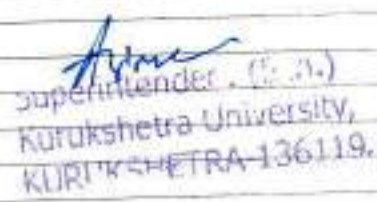 Superintender . (
Kurukshetra University,
KURUKSHETRA-136119.